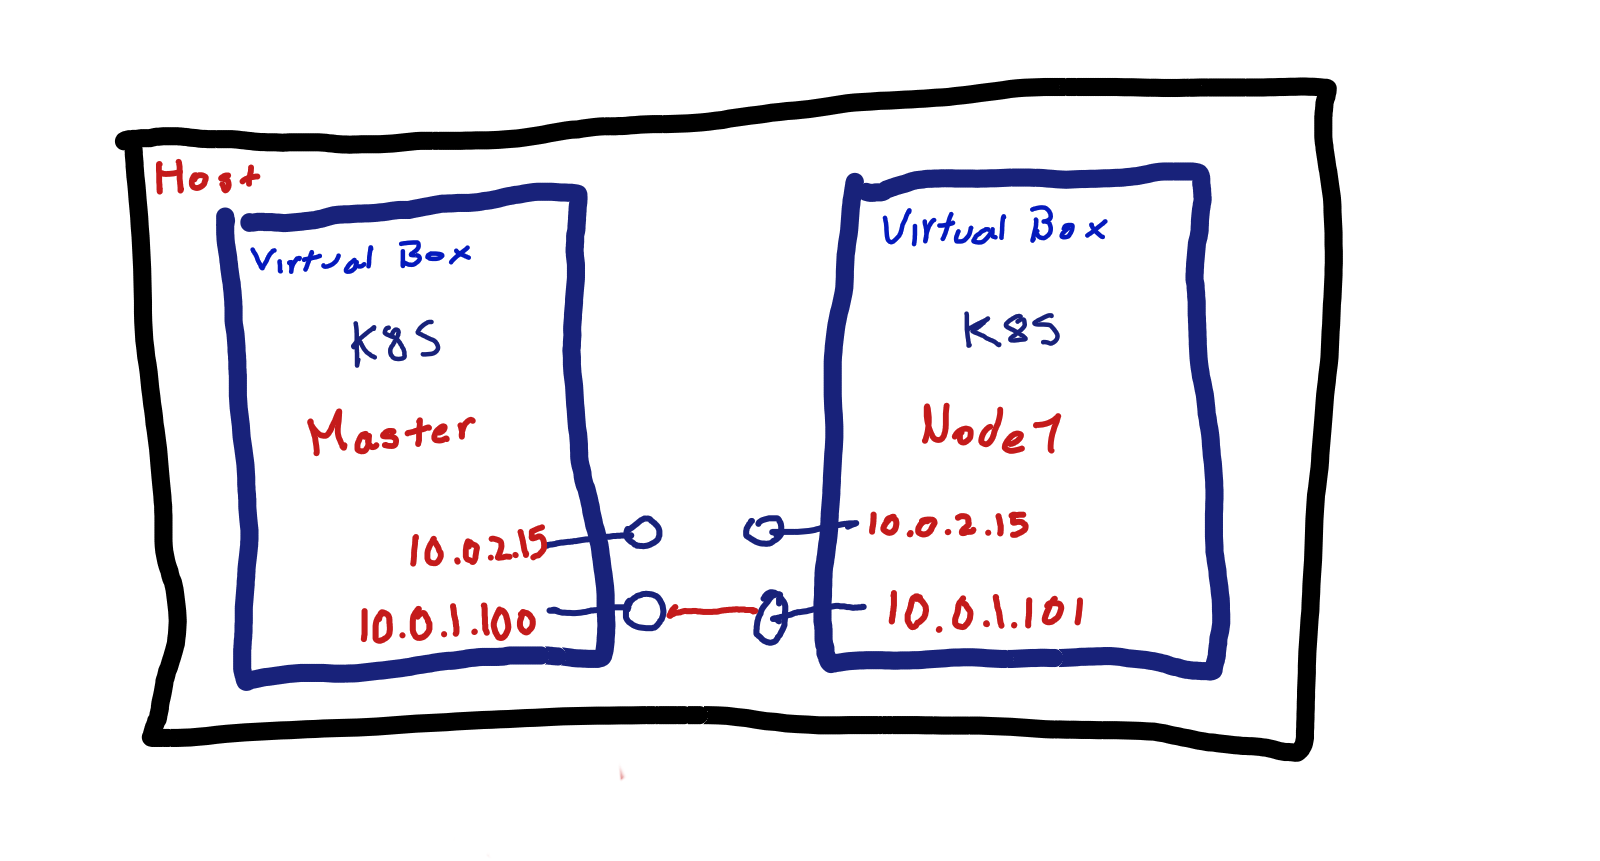 Host
Virtual Box
K8S
Master
10.0.2.15
10.0.1.100
Virtual Box
K8S
Node1
10.0.2.15
10.0.1.101